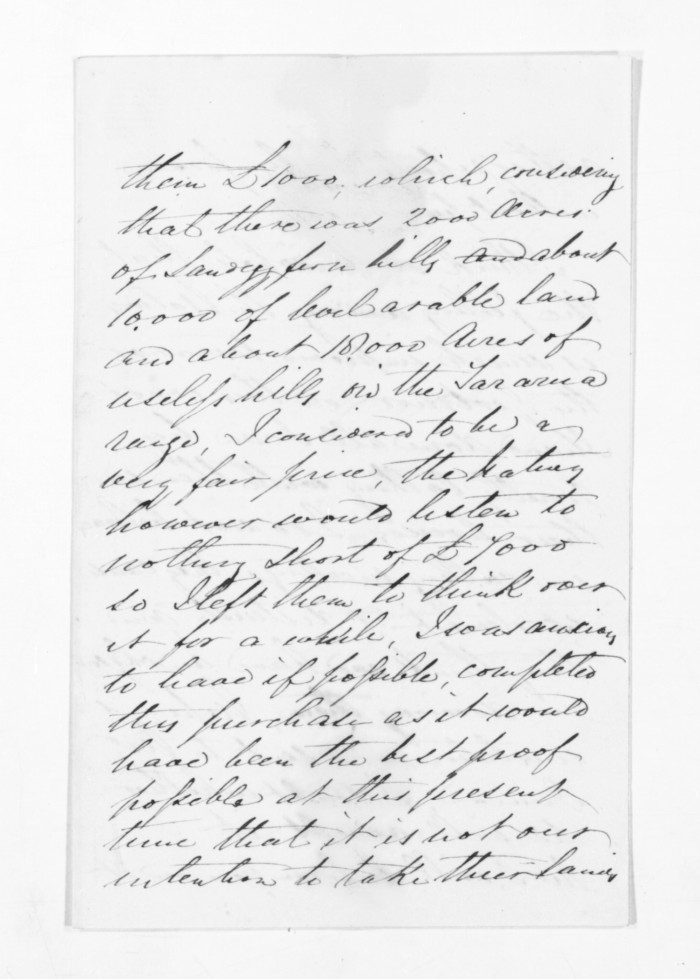 them £1000, which, considering
that there was 2000 Acres
of Sandy fern hills and about
10,000 of level arable land
and about 18,000 Acres of
useless hills on the Tararua
range, I considered to be a
very fair price, the Natives
however would listen to
nothing short of £7000
so I left them to think over
it for a while, I was anxious
to have if possible, completed
this purchase as it would
have been the best proof
possible at this present
time that it is not our
intention to take their Lands